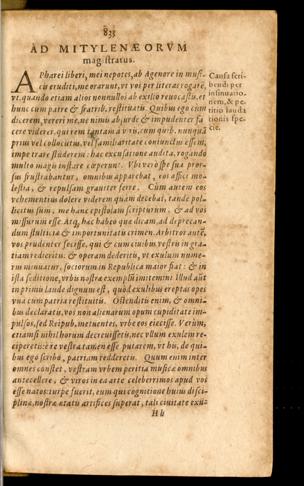 833
AD MITYLENÆORVM
magistratus.
A Pharei liberi, mei nepotes, ab Agenore in musi-
cis eruditi, me orarunt, vt voi per literas rogarē,
vt, quando etiam alios nonnullos ab exilio reuocastis, et
hunc cum patre & fratrib. restituatis. Quibus ego cùm
dicerem, vereri me, ne nimis absurde & impudenter fa
cere viderer, qui rem tantam à viris, cum quib. nunquā
prius vel collocutus, vel familiaritate coniunctus essem,
impetrare studerem: hac excusatione audita, rogando
multo magis instare cœperunt. Vbi verò spe sua pror-
sus frustrabantur, omnibus apparebat, eos affici mo-
lestia, & repulsam grauiter ferre. Cùm autem eos
vehementius dolere viderem quàm decebat, tandē pol-
licitus sum, me hanc epistolam scripturum, & ad vos
missurum esse. Atq; hac habeo quæ dicam, ad deprecan-
dum stultitiæ & importunitatis crimen. Arbitror autē,
vos prudenter fecisse, qui & cum ciuibus vestris in gra-
tiam redieritis: & operam dederitis, vt exulum nume-
rus minuatur, sociorum in Republica maior fiat: & in
ista seditione, vrbis nostræ exemplū imitemini. Illud aūt
in primis laude dignum est, quòd exulibus ereptas opes
vna cum patria restituitis. Ostenditis enim, & omni-
bus declaratis, vos non alienarum opum cupiditate im-
pulsos, sed Reipub. metuentes, vrbe eos eiecisse. Verùm,
etiamsi nihil horum decreuissetis, nec vllum exulem re-
ciperetis: è re vestra tamen esse putarem, vt his, de qui-
bus ego scribo, patriam redderetis. Quùm enim inter
omnes constet, vestram vrbem peritia musicæ omnibus
antecellere, & viros in ea arte celeberrimos apud vos
esse natos: turpe fuerit, eum qui cognitione huius disci-
plinæ, nostræ ætatis artifices superat, tali ciuitate exu-
Hh
Causa scri-
bendi per
insinuatio-
nem, & pe-
titio lauda
tionis spe-
cie.